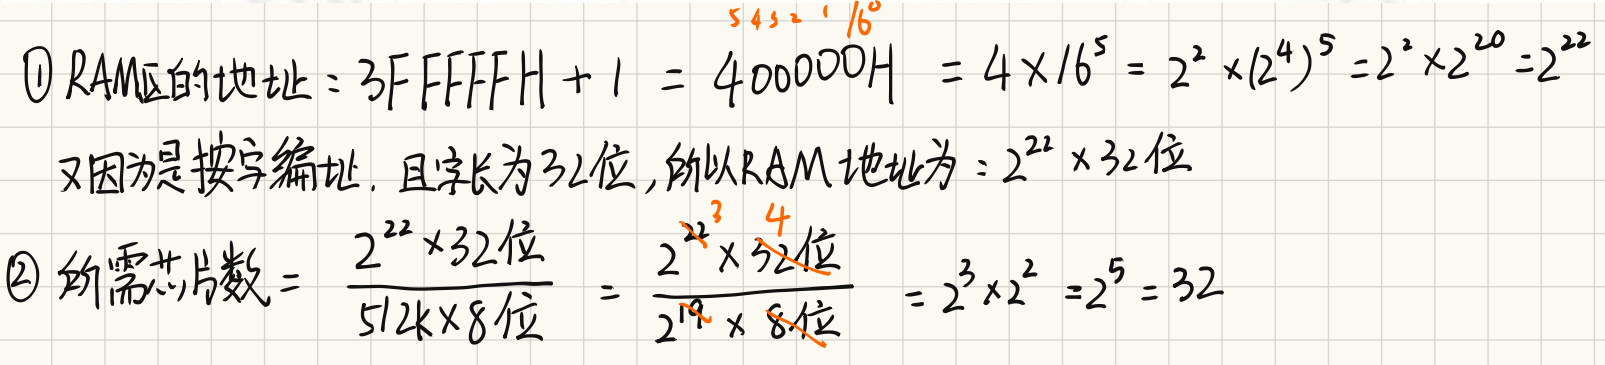 5 4 3 2 1 16⁰
① RAM区的地址：3FFFFFH + 1 = 400000H = 4×16⁵ = 2²×(2⁴)⁵ = 2²×2²⁰ = 2²²
又因为是按字编址，且字长为32位，所以RAM地址为：2²²×32位
3 4
② 所需芯片数 = 2²²×32位 / 512K×8位 = 2²²×32位 / 2¹⁹×8位 = 2³×2² = 2⁵ = 32